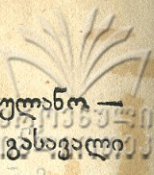 ულანო —
გასავალი